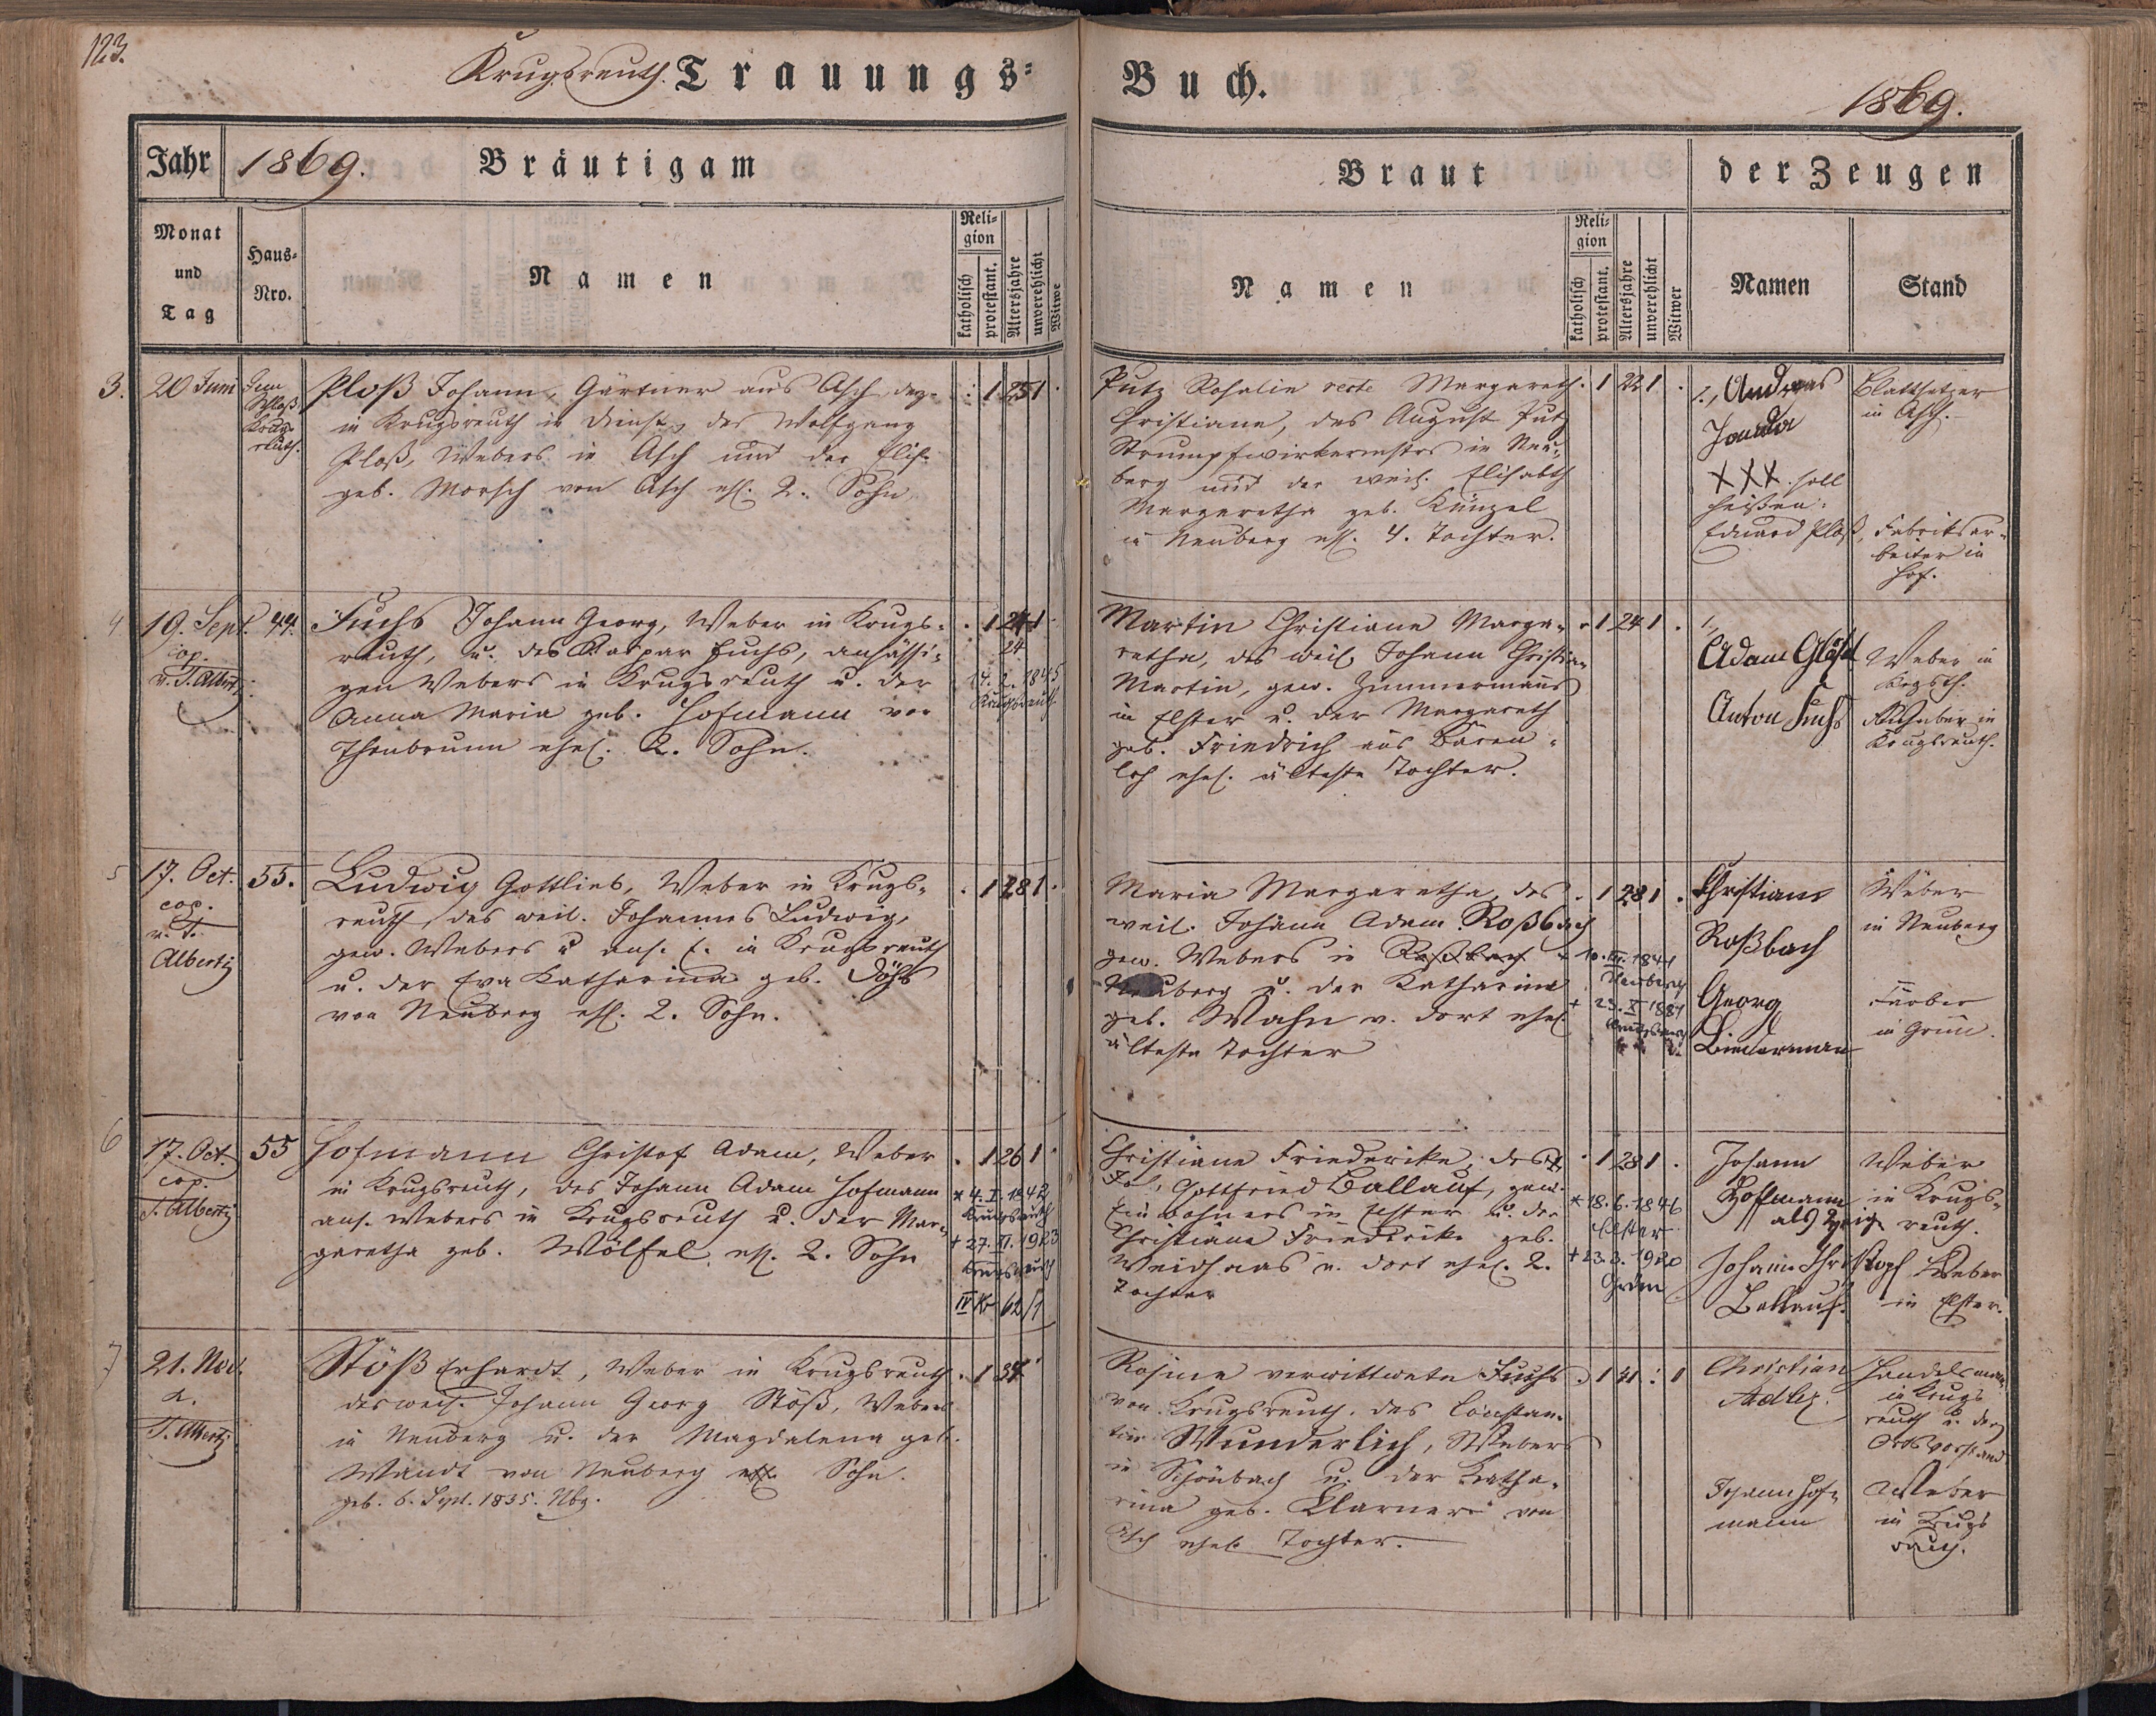 123.
Krugsreuth. Trauungs=
Buch.
1869.
Jahr 1869. Bräutigam
Braut
der Zeugen
Monat
und
Tag
Haus=
Nro.
Namen
Reli=
gion
katholisch
protestant.
Altersjahre
unverehlicht
Witwe
Namen
Reli=
gion
katholisch
protestant.
Altersjahre
unverehlicht
Witwer
Namen
Stand
3. 20 Juni
Schloß
Krugs
reuth.
Ploß Johann, Gärtner aus Asch, derz.
in Krugsreuth in Dienst, des Wolfgang
Ploß, Webers in Asch und der Elis.
geb. Morsch von Asch ehl. 2. Sohn.
. 1 25 1 .
Putz Rosalie recte Margareth
Christiane, des August Putz
Strumpfwirkermstrs in Neu=
berg und der weil. Elisabth
Margaretha geb. Künzel
in Neuberg ehl. 4. Tochter.
. 1 22 1 .
1., Andreas
XXX. soll
heißen:
Eduard Ploß,
Blattsetzer
in Asch.
Fabriksar=
beiter in
Hof.
4 19. Sept. 44.
cop.
v. T. Alberti
Fuchs Johann Georg, Weber in Krugs=
reuth, u. des Kaspar Fuchs, ansässi=
gen Webers in Krugsreuth u. der
Anna Maria geb. Hofmann von
Thonbrunn ehel. 2. Sohn.
. 1 24 1 .
24
1845
Krugsreuth
Martin Christiane Marga=
retha, des weil. Johann Christian
Martin, gew. Zimmermanns
in Elster u. der Margareth
geb. Friedrich aus Bären=
loh ehel. älteste Tochter.
. 1 24 1 .
1.,
Adam
Anton Fuchs
Weber in
Krgsrth.
in
Krugsreuth.
5 17. Oct. 55.
cop.
v. T.
Alberti
Ludwig Gottlieb, Weber in Krugs=
reuth, des weil. Johannes Ludwig,
gew. Webers u. ans. E. in Krugsreuth
u. der Eva Katharina geb.
von Neuberg ehl. 2. Sohn.
. 1 28 1 .
Maria Margaretha, des
weil. Johann Adam Roßbach
gew. Webers in Roßbach
Neuberg u. der Katharina
geb. Wahn v. dort ehel.
älteste Tochter
. 1 28 1 .
* 10. III. 1841
Neuberg
+ 23. X 1887
Krugsreuth
Christian
Roßbach
Georg
Biedermann
Weber
in Neuberg
Färber
in Grün.
6 17. Oct. 55
cop.
T. Alberti
Hofmann Christof Adam, Weber
in Krugsreuth, des Johann Adam Hofmann
ans. Webers in Krugsreuth u. der Mar=
garetha geb. Wölfel, ehl. 2. Sohn
. 1 26 1 .
* 4. I. 1842
Krugsreuth
+ 27. VI. 1923
Krugsreuth
IV Kr 62/1
Christiane Friederike, des
Joh. Gottfried Ballauf, gew.
Einwohners in Elster u. der
Christiane Friederike geb.
Weidhaas v. dort ehel. 2.
Tochter
. 1 28 1 .
* 18. 6. 1846
Elster
+ 23. 3. 1920
Johann
Hofmann
als Zeuge
Johann Christoph
Ballauf.
Weber
in Krugs=
reuth.
Weber
in Elster.
7 21. Nov.
T. Alberti
Stöß Erhardt, Weber in Krugsreuth
des weil. Johann Georg Stöß, Webers
in Neuberg u. der Magdalena geb.
Wandt von Neuberg ehl. Sohn.
geb. 6. Sept. 1835. Nbg.
. 1 34 1
Rosine verwittwete Fuchs
von Krugsreuth, des Constan=
tin Wunderlich, Webers
in Schönbach u. der Katha=
rina geb. Klarner von
Asch ehel. Tochter.
. 1 41 : 1
Christian
Adler.
Johann Hof=
mann
Handelsmann
in Krugs
reuth u. derz.
Ortsvorstand.
Weber
in Krugs
reuth.